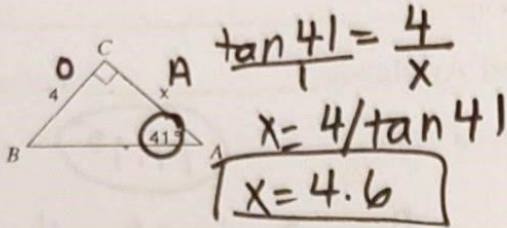 O C A
4 x
B 41° A
tan 41 / 1 = 4 / x
x = 4/tan 41
x = 4.6